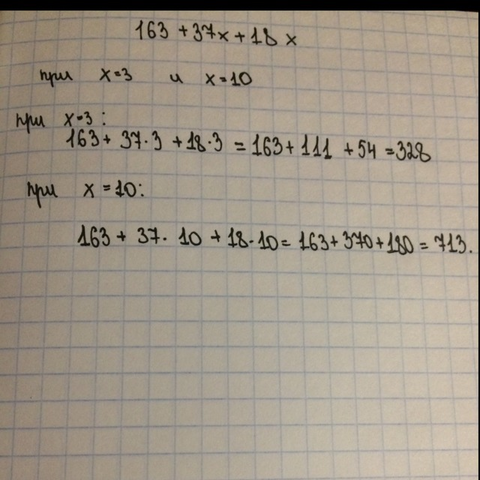 163 + 37x + 18x
при x=3 и x=10
при x=3:
163 + 37·3 + 18·3 = 163 + 111 + 54 = 328
при x = 10:
163 + 37· 10 + 18·10 = 163 + 370 + 180 = 713.